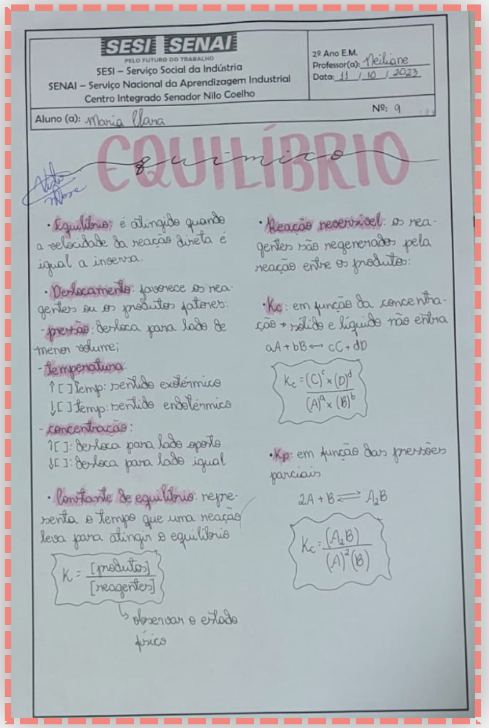 SESI SENAI
PELO FUTURO DO TRABALHO
SESI – Serviço Social da Indústria
SENAI – Serviço Nacional da Aprendizagem Industrial
Centro Integrado Senador Nilo Coelho
2º Ano E.M.
Professor(a): Neiliane
Data: 11 / 10 / 2023
Aluno (a): Maria Clara
Nº: 9
EQUILÍBRIO
químico
• Equilíbrio: é atingido quando
a velocidade da reação direta é
igual a inversa.
• Deslocamento: favorece os rea-
gentes ou os produtos fatores:
- pressão: desloca para lado de
menor volume;
- temperatura:
↑[ ] temp: sentido exotérmico
↓[ ] temp: sentido endotérmico
- concentração:
↑[ ]: desloca para lado oposto
↓[ ]: desloca para lado igual
• Constante de equilíbrio: repre-
senta o tempo que uma reação
leva para atingir o equilíbrio
K = [produtos]
[reagentes]
↳ observar o estado
físico
• Reação reversível: os rea-
gentes são regenerados pela
reação entre os produtos:
• Kc: em função da concentra-
ção + sólido e líquido não entra
aA + bB ↔ cC + dD
Kc = (C)ᶜ × (D)ᵈ
(A)ᵃ × (B)ᵇ
• Kp: em função das pressões
parciais
2A + B ⇌ A₂B
Kc = (A₂B)
(A)² (B)